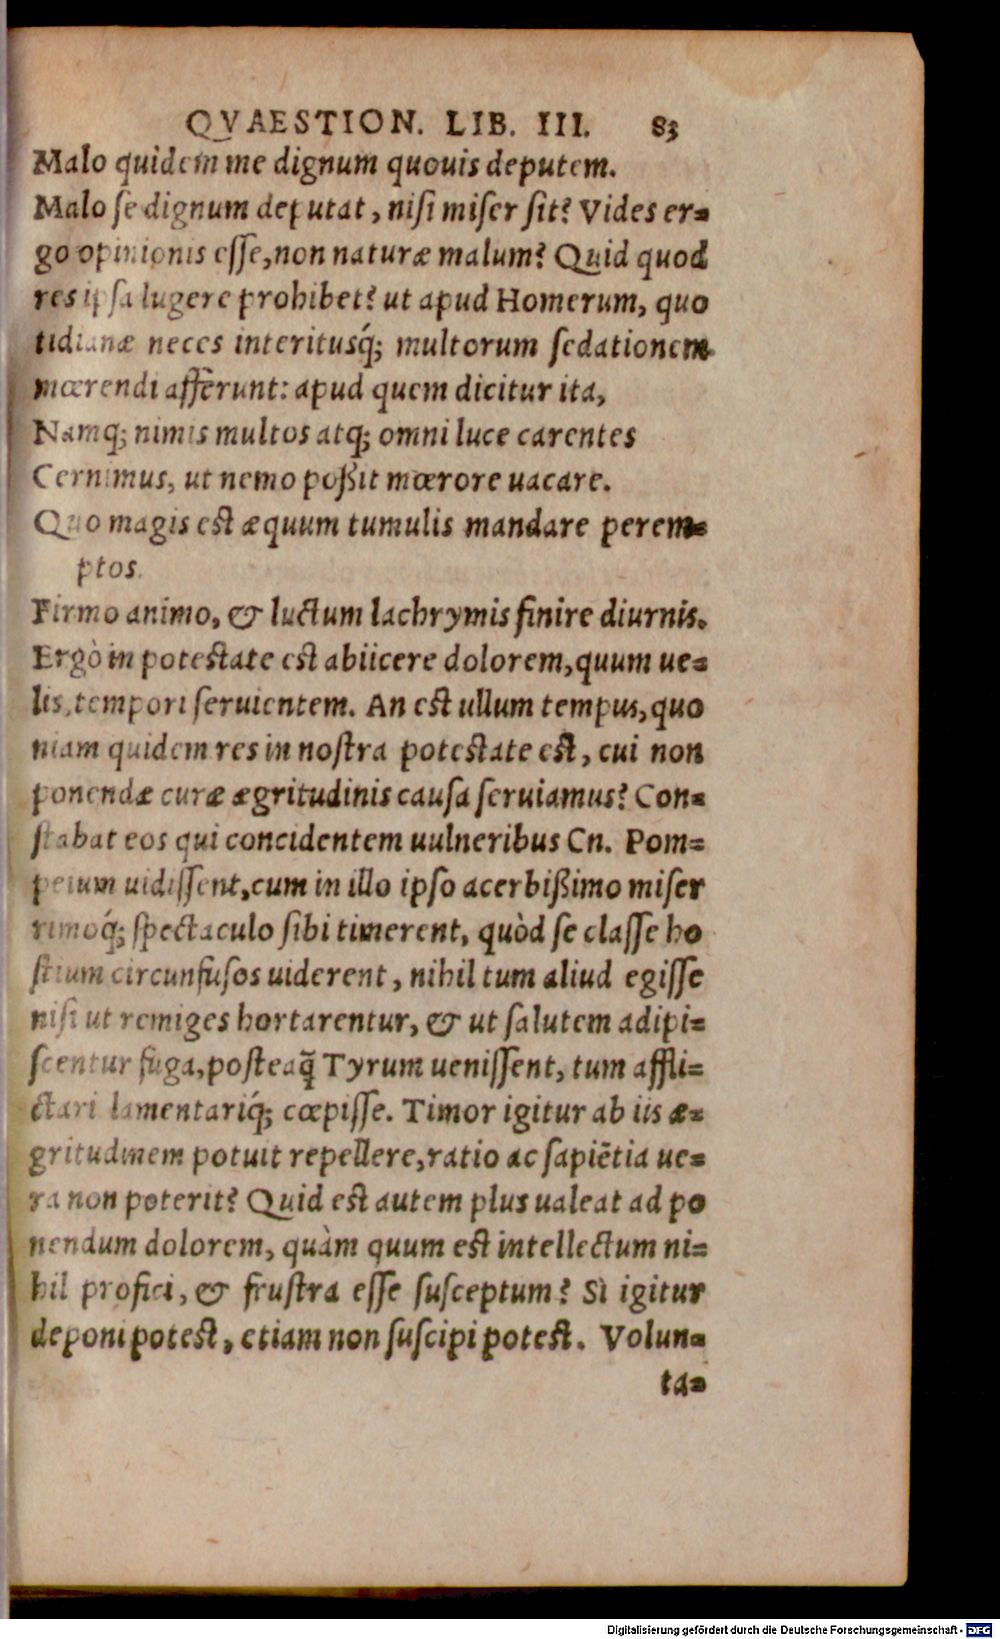 QVAESTION. LIB. III. 83
Malo quidem me dignum quouis deputem.
Malo ſe dignum deputat, niſi miſer ſit? Vides er-
go opinionis eſſe, non naturæ malum? Quid quod
res ipſa lugere prohibet? ut apud Homerum, quo
tidianæ neces interitusq́; multorum ſedationem
mœrendi afferunt: apud quem dicitur ita,
Namq; nimis multos atq; omni luce carentes
Cernimus, ut nemo poßit mœrore uacare.
Quo magis eſt æquum tumulis mandare perem-
ptos.
Firmo animo, & luctum lachrymis finire diurnis.
Ergò in poteſtate eſt abiicere dolorem, quum ue-
lis, tempori ſeruientem. An eſt ullum tempus, quo
niam quidem res in noſtra poteſtate eſt, cui non
ponendæ curæ ægritudinis cauſa ſeruiamus? Con-
ſtabat eos qui concidentem uulneribus Cn. Pom-
peium uidiſſent, cum in illo ipſo acerbißimo miſer
rimoq́; ſpectaculo ſibi timerent, quòd ſe claſſe ho
ſtium circunfuſos uiderent, nihil tum aliud egiſſe
niſi ut remiges hortarentur, & ut ſalutem adipi-
ſcentur fuga, poſteaq̃ Tyrum ueniſſent, tum affli-
ctari lamentariq́; cœpiſſe. Timor igitur ab iis æ-
gritudinem potuit repellere, ratio ac ſapiẽtia ue-
ra non poterit? Quid eſt autem plus ualeat ad po
nendum dolorem, quàm quum eſt intellectum ni-
hil profici, & fruſtra eſſe ſuſceptum? Si igitur
deponi poteſt, etiam non ſuſcipi poteſt. Volun-
ta-
Digitalisierung gefördert durch die Deutsche Forschungsgemeinschaft - DFG